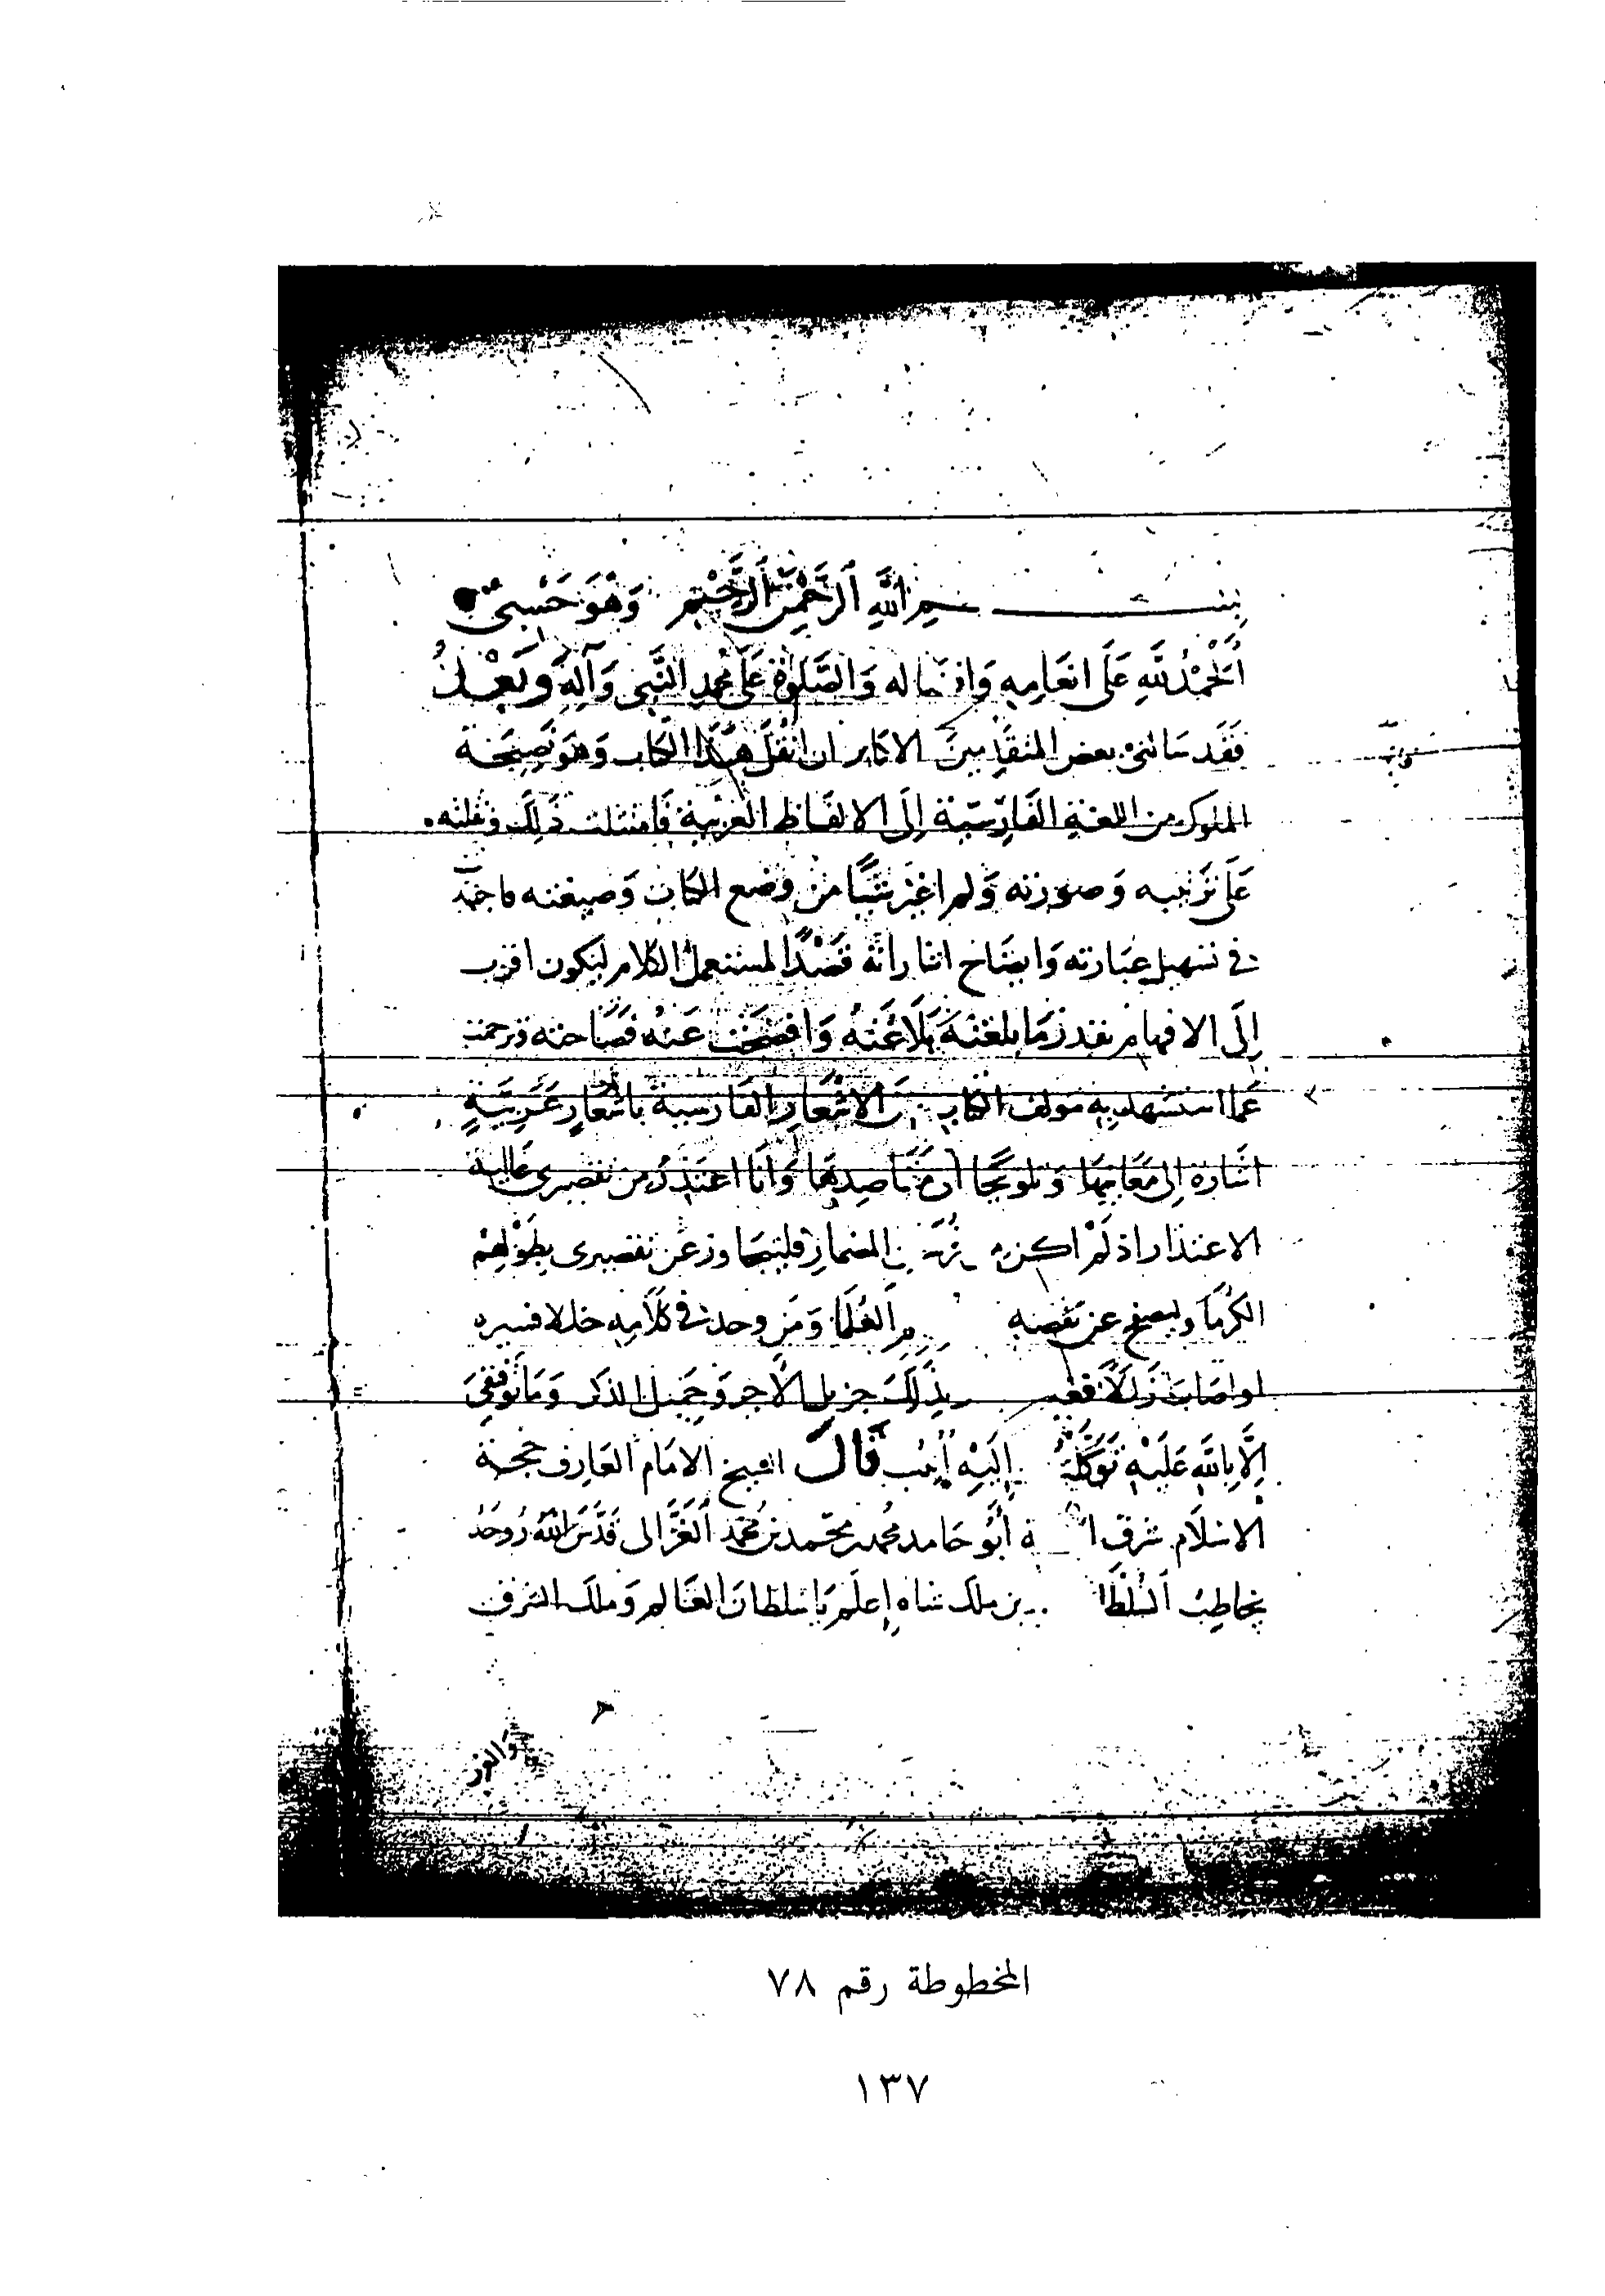 بسم الله الرحمن الرحيم وهو حسبي
الحمد لله على انعامه وافضاله والصلوة على محمد النبي وآله وبعد
فقد سالني بعض المتقدمين الاكابر ان انقل هذا الكتاب وهو نصيحة
الملوك من اللغة الفارسية إلى الالفاظ العربية فامتثلت ذلك ونقلته
على ترتيبه وصورته ولم اغير شيئا من وضع الكتاب وصيغته
في تسهيل عبارته وايضاح اشاراته قصدا لمستعمل الكلام ليكون اقرب
إلى الافهام بقدر ما بلغته بلاغته وافصحت عنه فصاحته وترجمت
عما استشهد به مولف الكتاب من الاشعار الفارسية باشعار عربية
اشارة إلى معانيها وتلويحا مقاصدها وانا اعتذر من تقصيري غاية
الاعتذار اذ لم اكن المضمار فليتجاوز عن تقصيري بطولهم
الكرما وليصفح عن نقصه العلما ومن وجد في كلامه خللا فستره
او اصاب زللا بذلك جزيل الأجر وجميل الذكر وما توفيقي
إلا بالله عليه توكلت إليه أنيب قال الشيخ الامام العارف حجة
الاسلام شرف أبو حامد محمد بن محمد بن محمد الغزالي قدس الله روحه
يخاطب السلطا بن ملك شاه إعلم يا سلطان العالم وملك الشرق
والغر
المخطوطة رقم ٧٨
١٣٧